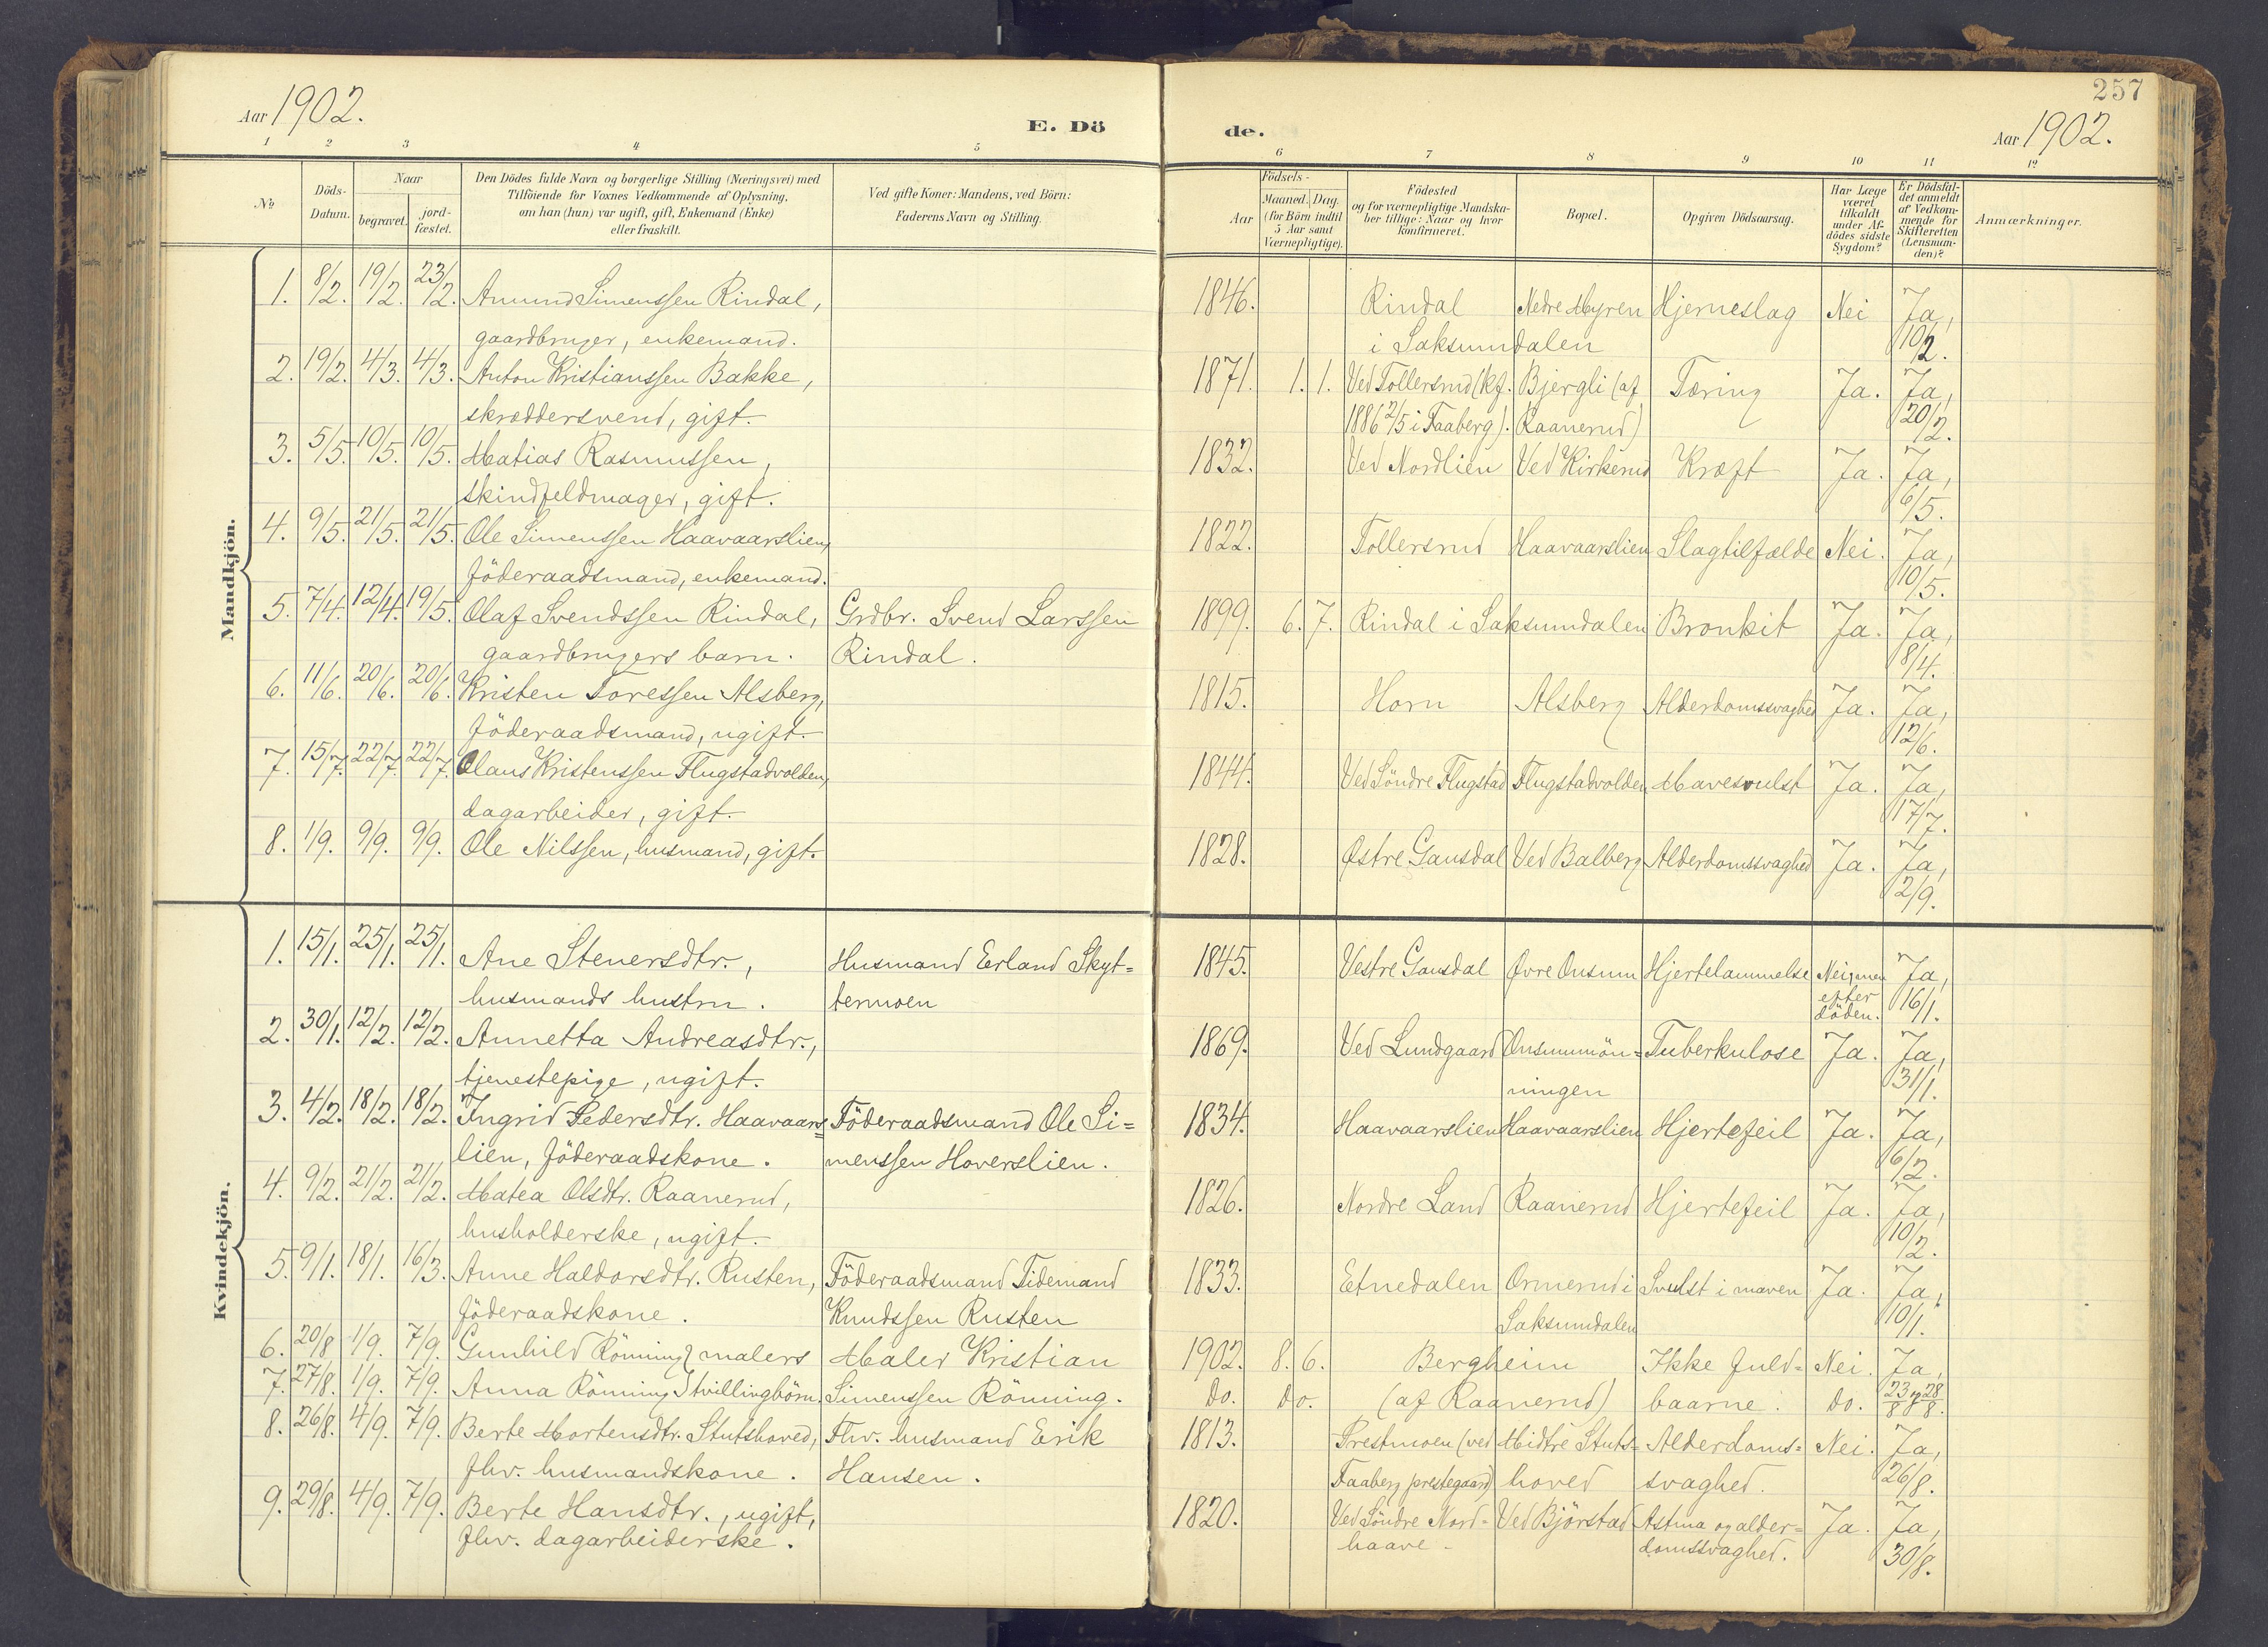 257
Aar 1902.
E. Dö
de.
Aar 1902.
1 2 3 4 5
6 7 8 9 10 11 12
No
Döds-Datum.
Naar
begravet.
jord-fæstet.
Den Dödes fulde Navn og borgerlige Stilling (Næringsvei) med
Tilföiende for Voxnes Vedkommende af Oplysning,
om han (hun) var ugift, gift, Enkemand (Enke)
eller fraskilt.
Ved gifte Koner: Mandens, ved Börn:
Faderens Navn og Stilling.
Födsels-
Aar
Maaned. Dag.
(for Börn indtil
5 Aar samt
Værnepligtige).
Födested
og for værnepligtige Mandska-
ber tillige: Naar og hvor
konfirmeret.
Bopæl.
Opgiven Dödsaarsag.
Har Læge
været
tilkaldt
under Af-
dödes sidste
Sygdom?
Er Dödsfal-
det anmeldt
af Vedkom-
mende for
Skifteretten
(Lensman-
den)?
Anmærkninger.
Mandkjön.
1. 8/2. 19/2. 23/2. Amund Simenssen Rindal, 1846. Rindal Nedre Myren Hjerneslag Nei Ja,
gaardbruger, enkemand. i Saksumdalen 10/2.
2. 19/2. 4/3. 4/3. Anton Kristianssen Bakke, 1871. 1. 1. Ved Tollersrud (kf. Bjergli (af Tæring Ja. Ja,
skræddersvend, gift. 1886 2/5 i Faaberg). Raanerud) 20/2.
3. 5/5. 10/5. 10/5. Matias Rasmussen, 1832. Ved Nordlien Ved Kirkerud Kræft Ja. Ja,
skindfeldmager, gift. 6/5.
4. 9/5. 21/5. 21/5. Ole Simenssen Haavaarslien, 1822. Tollersrud Haavaarslien Slagtilfælde Nei. Ja,
föderaadsmand, enkemand. 10/5.
5. 7/4. 12/4. 19/5. Olaf Svendssen Rindal, Grdbr. Svend Larssen 1899. 6. 7. Rindal i Saksumdalen Bronkit Ja. Ja,
gaardbrugers barn. Rindal. 8/4.
6. 11/6. 20/6. 20/6. Kristen Toressen Alsberg, 1815. Horn Alsberg Alderdomssvaghed Ja. Ja,
föderaadsmand, ugift. 12/6.
7. 15/7. 22/7. 22/7. Olaus Kristenssen Flugstadvolden, 1844. Ved Söndre Flugstad Flugstadvolden Mavesvulst Ja. Ja,
dagarbeider, gift. 17/7.
8. 1/9. 9/9. 9/9. Ole Nilssen, husmand, gift. 1828. Østre Gausdal Ved Balberg Alderdomssvaghed Ja. Ja,
2/9.
Kvindekjön.
1. 15/1. 25/1. 25/1. Ane Stenersdtr., Husmand Erland Skyt= 1845. Vestre Gausdal Øvre Onsum Hjertelammelse Nei, men Ja,
husmands hustru. termoen efter döden. 16/1.
2. 30/1. 12/2. 12/2. Annetta Andreasdtr., 1869. Ved Lundgaard Onsummön= Tuberkulose Ja. Ja,
tjenestepige, ugift. ningen 31/1.
3. 4/2. 18/2. 18/2. Ingrid Pedersdtr. Haavaars= Föderaadsmand Ole Si= 1834. Haavaarslien Haavaarslien Hjertefeil Ja. Ja,
lien, föderaadskone. menssen Hoverslien. 6/2.
4. 9/2. 21/2. 21/2. Matea Olsdtr. Raanerud, 1826. Nordre Land Raanerud Hjertefeil Ja. Ja,
husholderske, ugift. 10/2.
5. 9/1. 18/1. 16/3. Anne Haldorsdtr. Rusten, Föderaadsmand Tidemand 1833. Etnedalen Ormerud i Svulst i maven Ja. Ja,
föderaadskone. Knudssen Rusten Saksumdalen 10/1.
6. 20/8 1/9. 7/9. Gunhild Rönning } malers Maler Kristian 1902. 8. 6. Bergheim Ikke fuld= Nei. Ja,
7. 27/8. 1/9. 7/9. Anna Rönning } tvillingbörn. Simenssen Rönning. Do. Do. (af Raanerud) baarne. Do. 23/8 & 28/8.
8. 26/8. 4/9. 7/9. Berte Mortensdtr. Stutshoved, Fhv. husmand Erik 1813. Prestmoen (ved Midtre Stuts= Alderdoms= Nei. Ja,
fhv. husmandskone. Hansen. Faaberg prestegaard) hoved svaghed. 26/8.
9. 29/8. 4/9. 7/9. Berte Hansdtr., ugift, 1820. Ved Söndre Nord= Ved Björstad Astma og alder= Ja. Ja,
fhv. dagarbeiderske. haave. domssvaghed. 30/8.